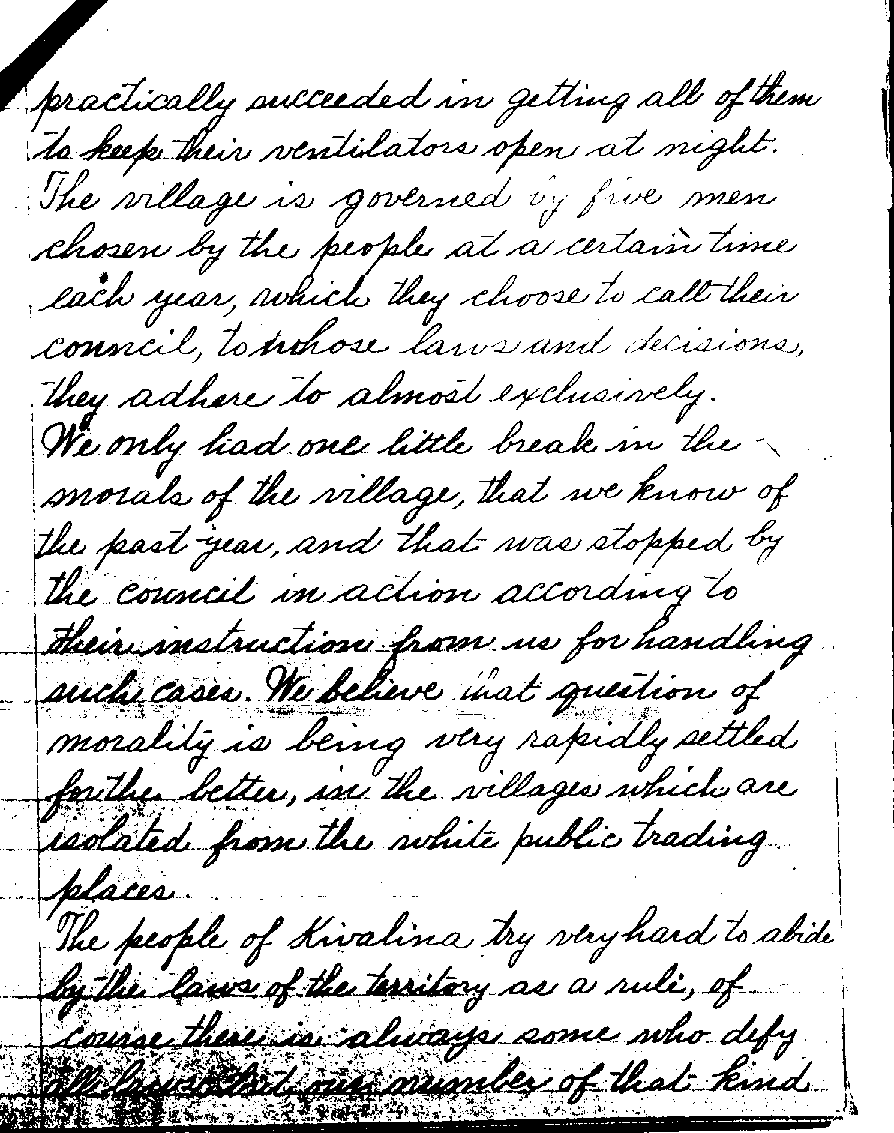 practically succeeded in getting all of them
to keep their ventilators open at night.
The village is governed by five men
chosen by the people at a certain time
each year, which they choose to call their
council, to whose laws and decisions,
they adhere to almost exclusively.
We only had one little break in the
morals of the village, that we know of
the past year, and that was stopped by
the council in action according to
their instruction from us for handling
such cases. We believe that question of
morality is being very rapidly settled
for the better, in the villages which are
isolated from the white public trading
places.
The people of Kivalina try very hard to abide
by the laws of the territory as a rule, of
course there is always some who defy
all laws but our number of that kind